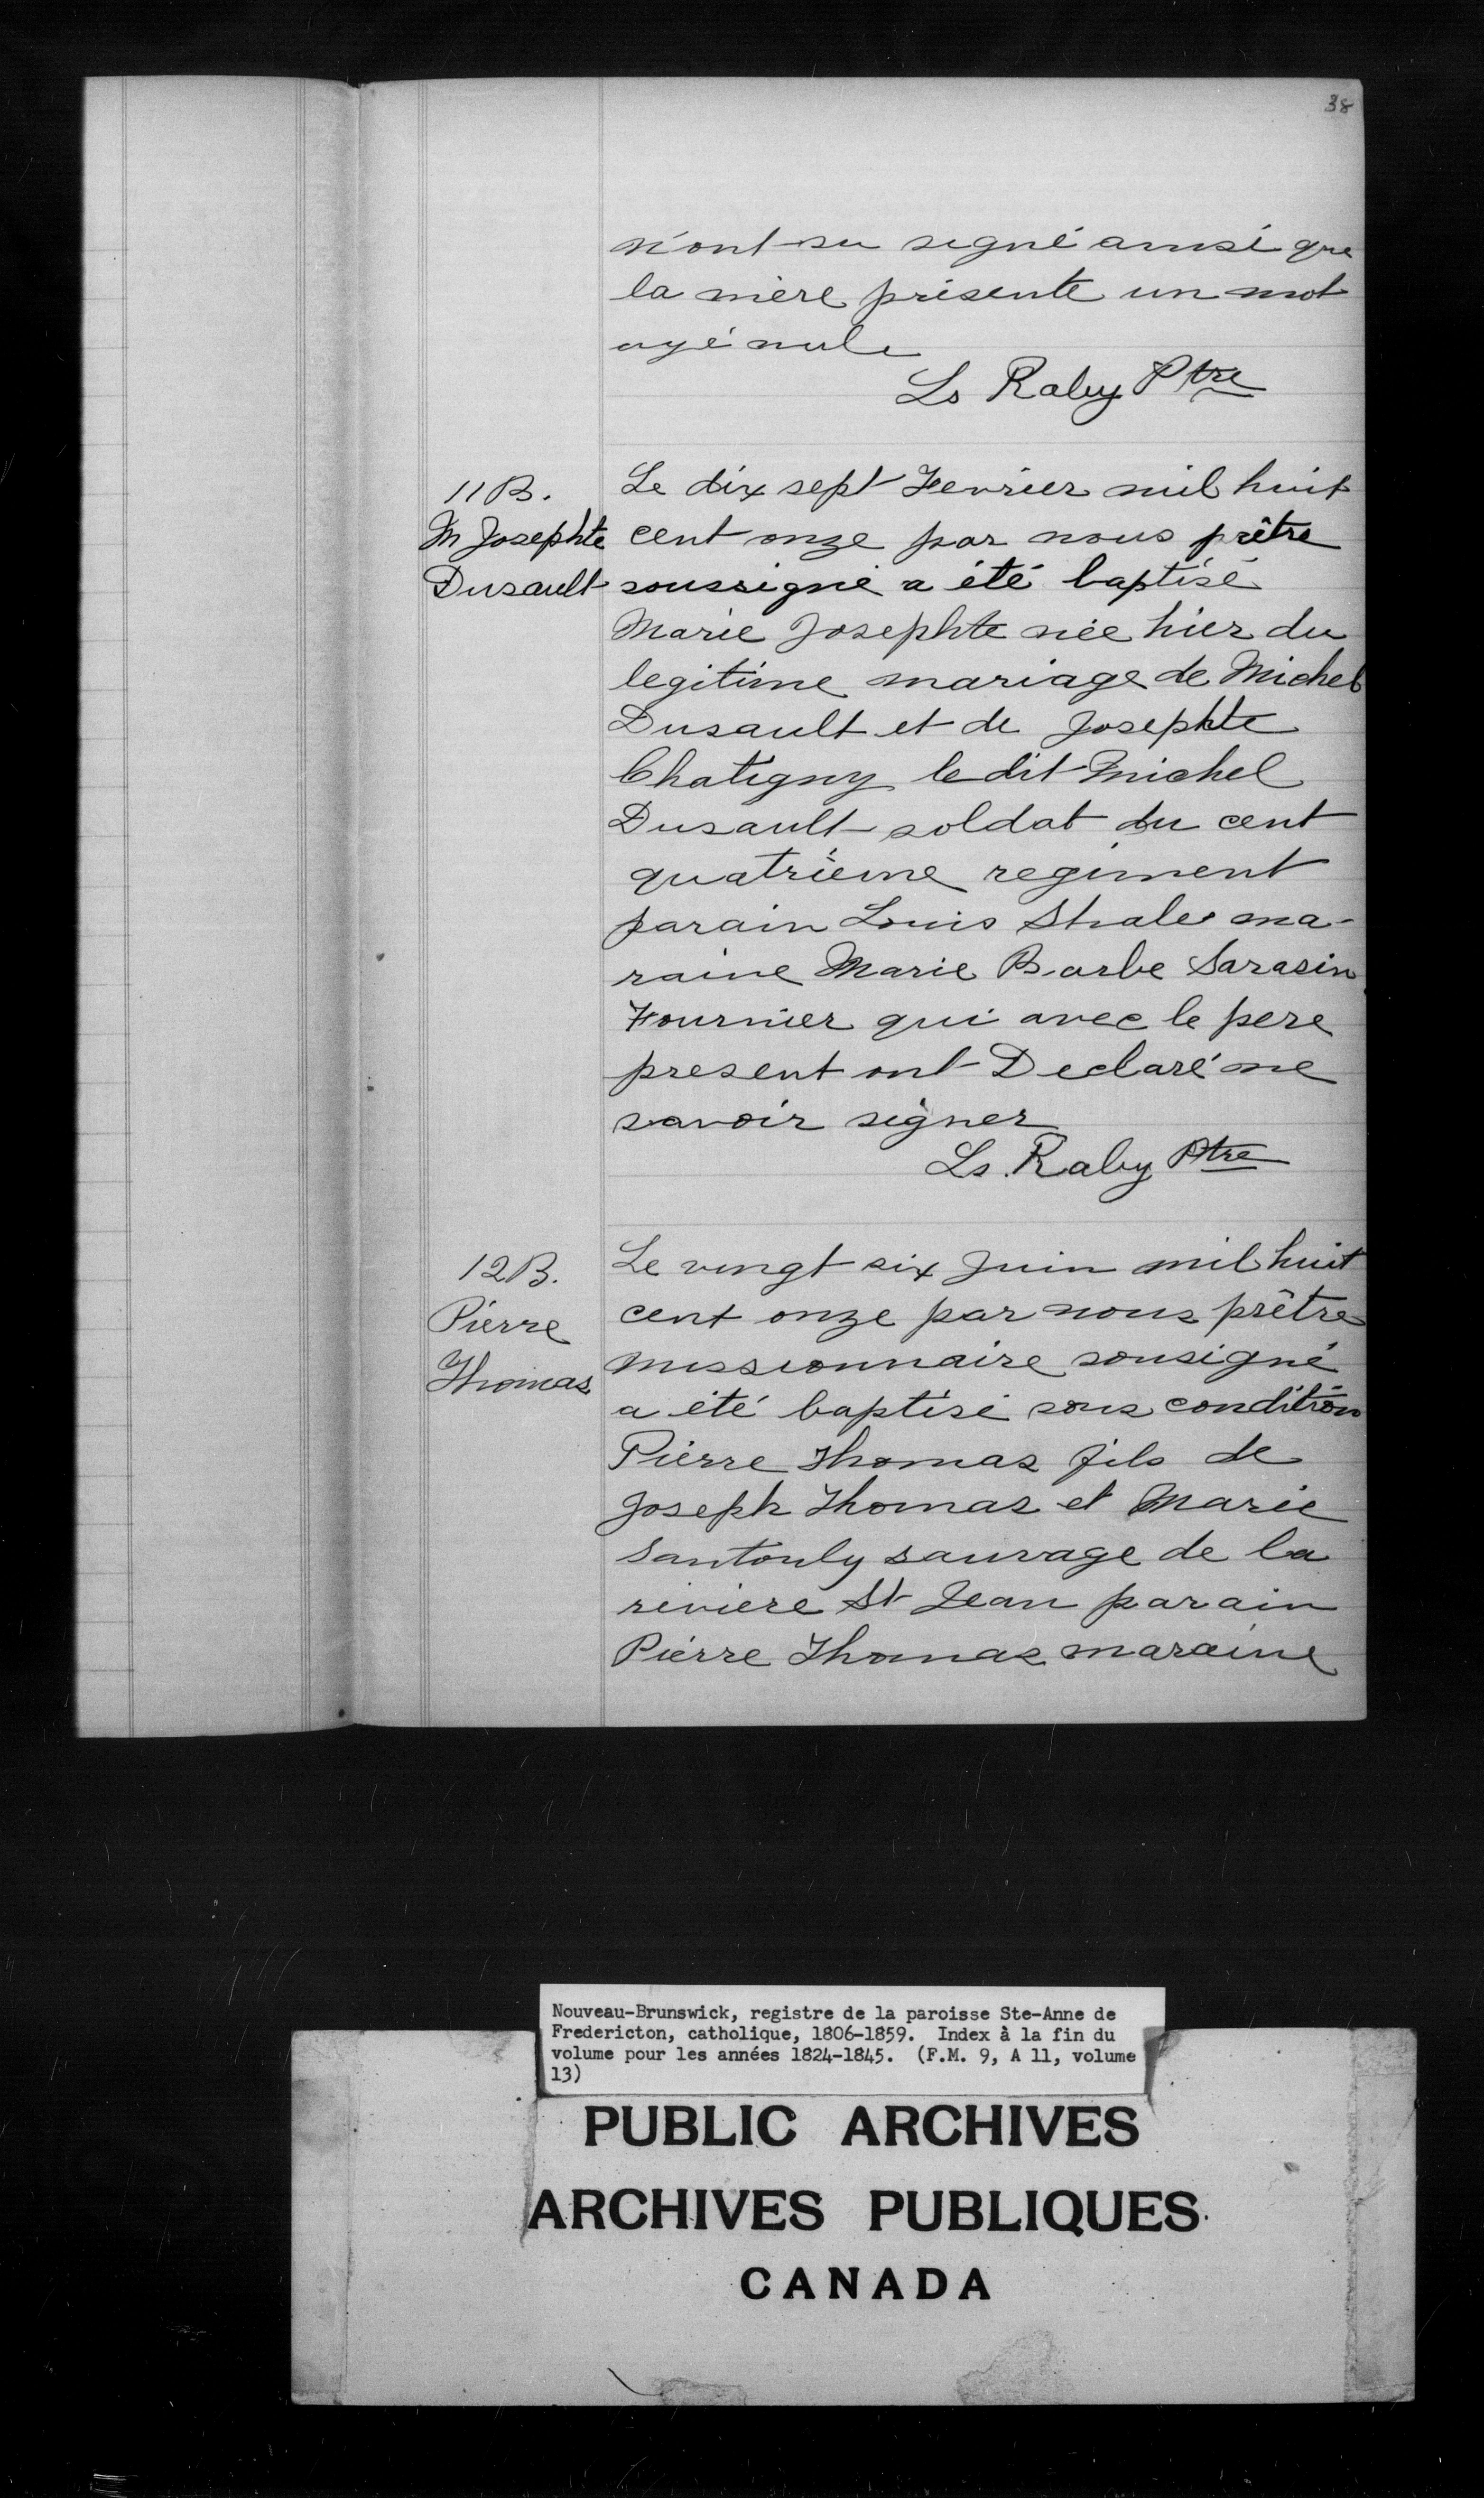 38
n'ont su signé ainsi que
la mère présente un mot
nule
Ls Raby Ptre
11 B.
M Josephte
Dusault
Le dix sept Fevrier mil huit
cent onze par nous prêtre
soussigné a été baptisé
Marie Josephte née hier du
legitime mariage de Michel
Dusault et de Josephte
Chatigny le dit Michel
Dusault soldat du cent
quatrième regiment
parain Louis ma-
raine Marie Barbe Sarasin
Fournier qui avec le pere
present ont Declaré ne
savoir signer
Ls. Raby Ptre
12 B.
Pierre
Thomas
Le vingt six Juin mil huit
cent onze par nous prêtre
missionnaire sousigné
a été baptisé sous condition
Pierre Thomas fils de
Joseph Thomas et Marie
Santouly sauvage de la
riviere St Jean parain
Pierre Thomas maraine
Nouveau-Brunswick, registre de la paroisse Ste-Anne de
Fredericton, catholique, 1806-1859. Index à la fin du
volume pour les années 1824-1845. (F.M. 9, A 11, volume
13)
PUBLIC ARCHIVES
ARCHIVES PUBLIQUES
CANADA